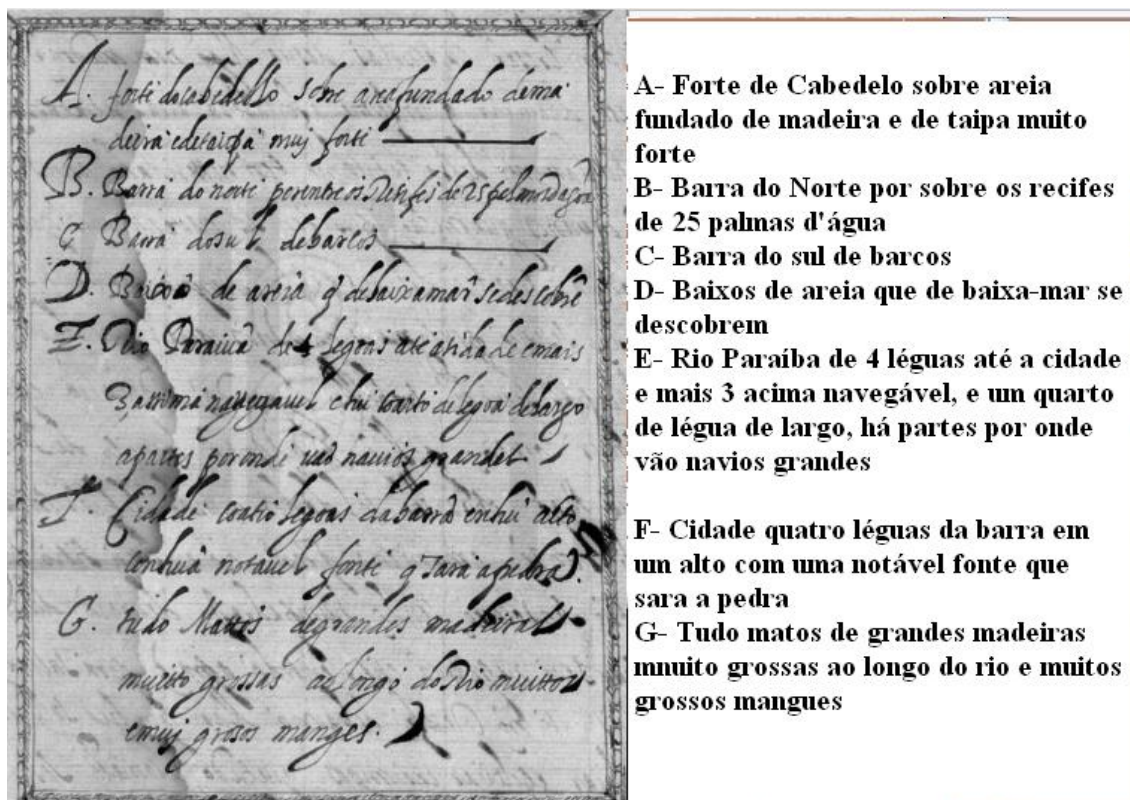 A. forte do cabedello sobre area fundado de ma
deira e de taipa muj forte
B. Barra do norte per entre os Resifes de 25 palmos dagoa
C Barra do sul de barcos
D. Baixos de areia q de baixamar se descobre
E. Rio Paraiua de 4 legoas ate a cidade e mais
3 assima nauegauel e hu coarto de legoa de largo
a partes por onde uaõ nauios grandes
F. Cidade coatro legoas da barra em hu alto
con hua notauel fonte q sara a pedra
G. tudo Mattos de grandes madeiras
muitto grossas ao longo do Rio muittos
e muj grosos manges.
A- Forte de Cabedelo sobre areia
fundado de madeira e de taipa muito
forte
B- Barra do Norte por sobre os recifes
de 25 palmas d'água
C- Barra do sul de barcos
D- Baixos de areia que de baixa-mar se
descobrem
E- Rio Paraíba de 4 léguas até a cidade
e mais 3 acima navegável, e um quarto
de légua de largo, há partes por onde
vão navios grandes
F- Cidade quatro léguas da barra em
um alto com uma notável fonte que
sara a pedra
G- Tudo matos de grandes madeiras
mnuito grossas ao longo do rio e muitos
grossos mangues